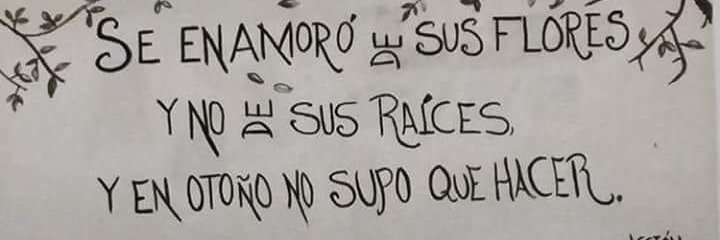 SE ENAMORÓ DE SUS FLORES
Y NO DE SUS RAÍCES,
Y EN OTOÑO NO SUPO QUE HACER.